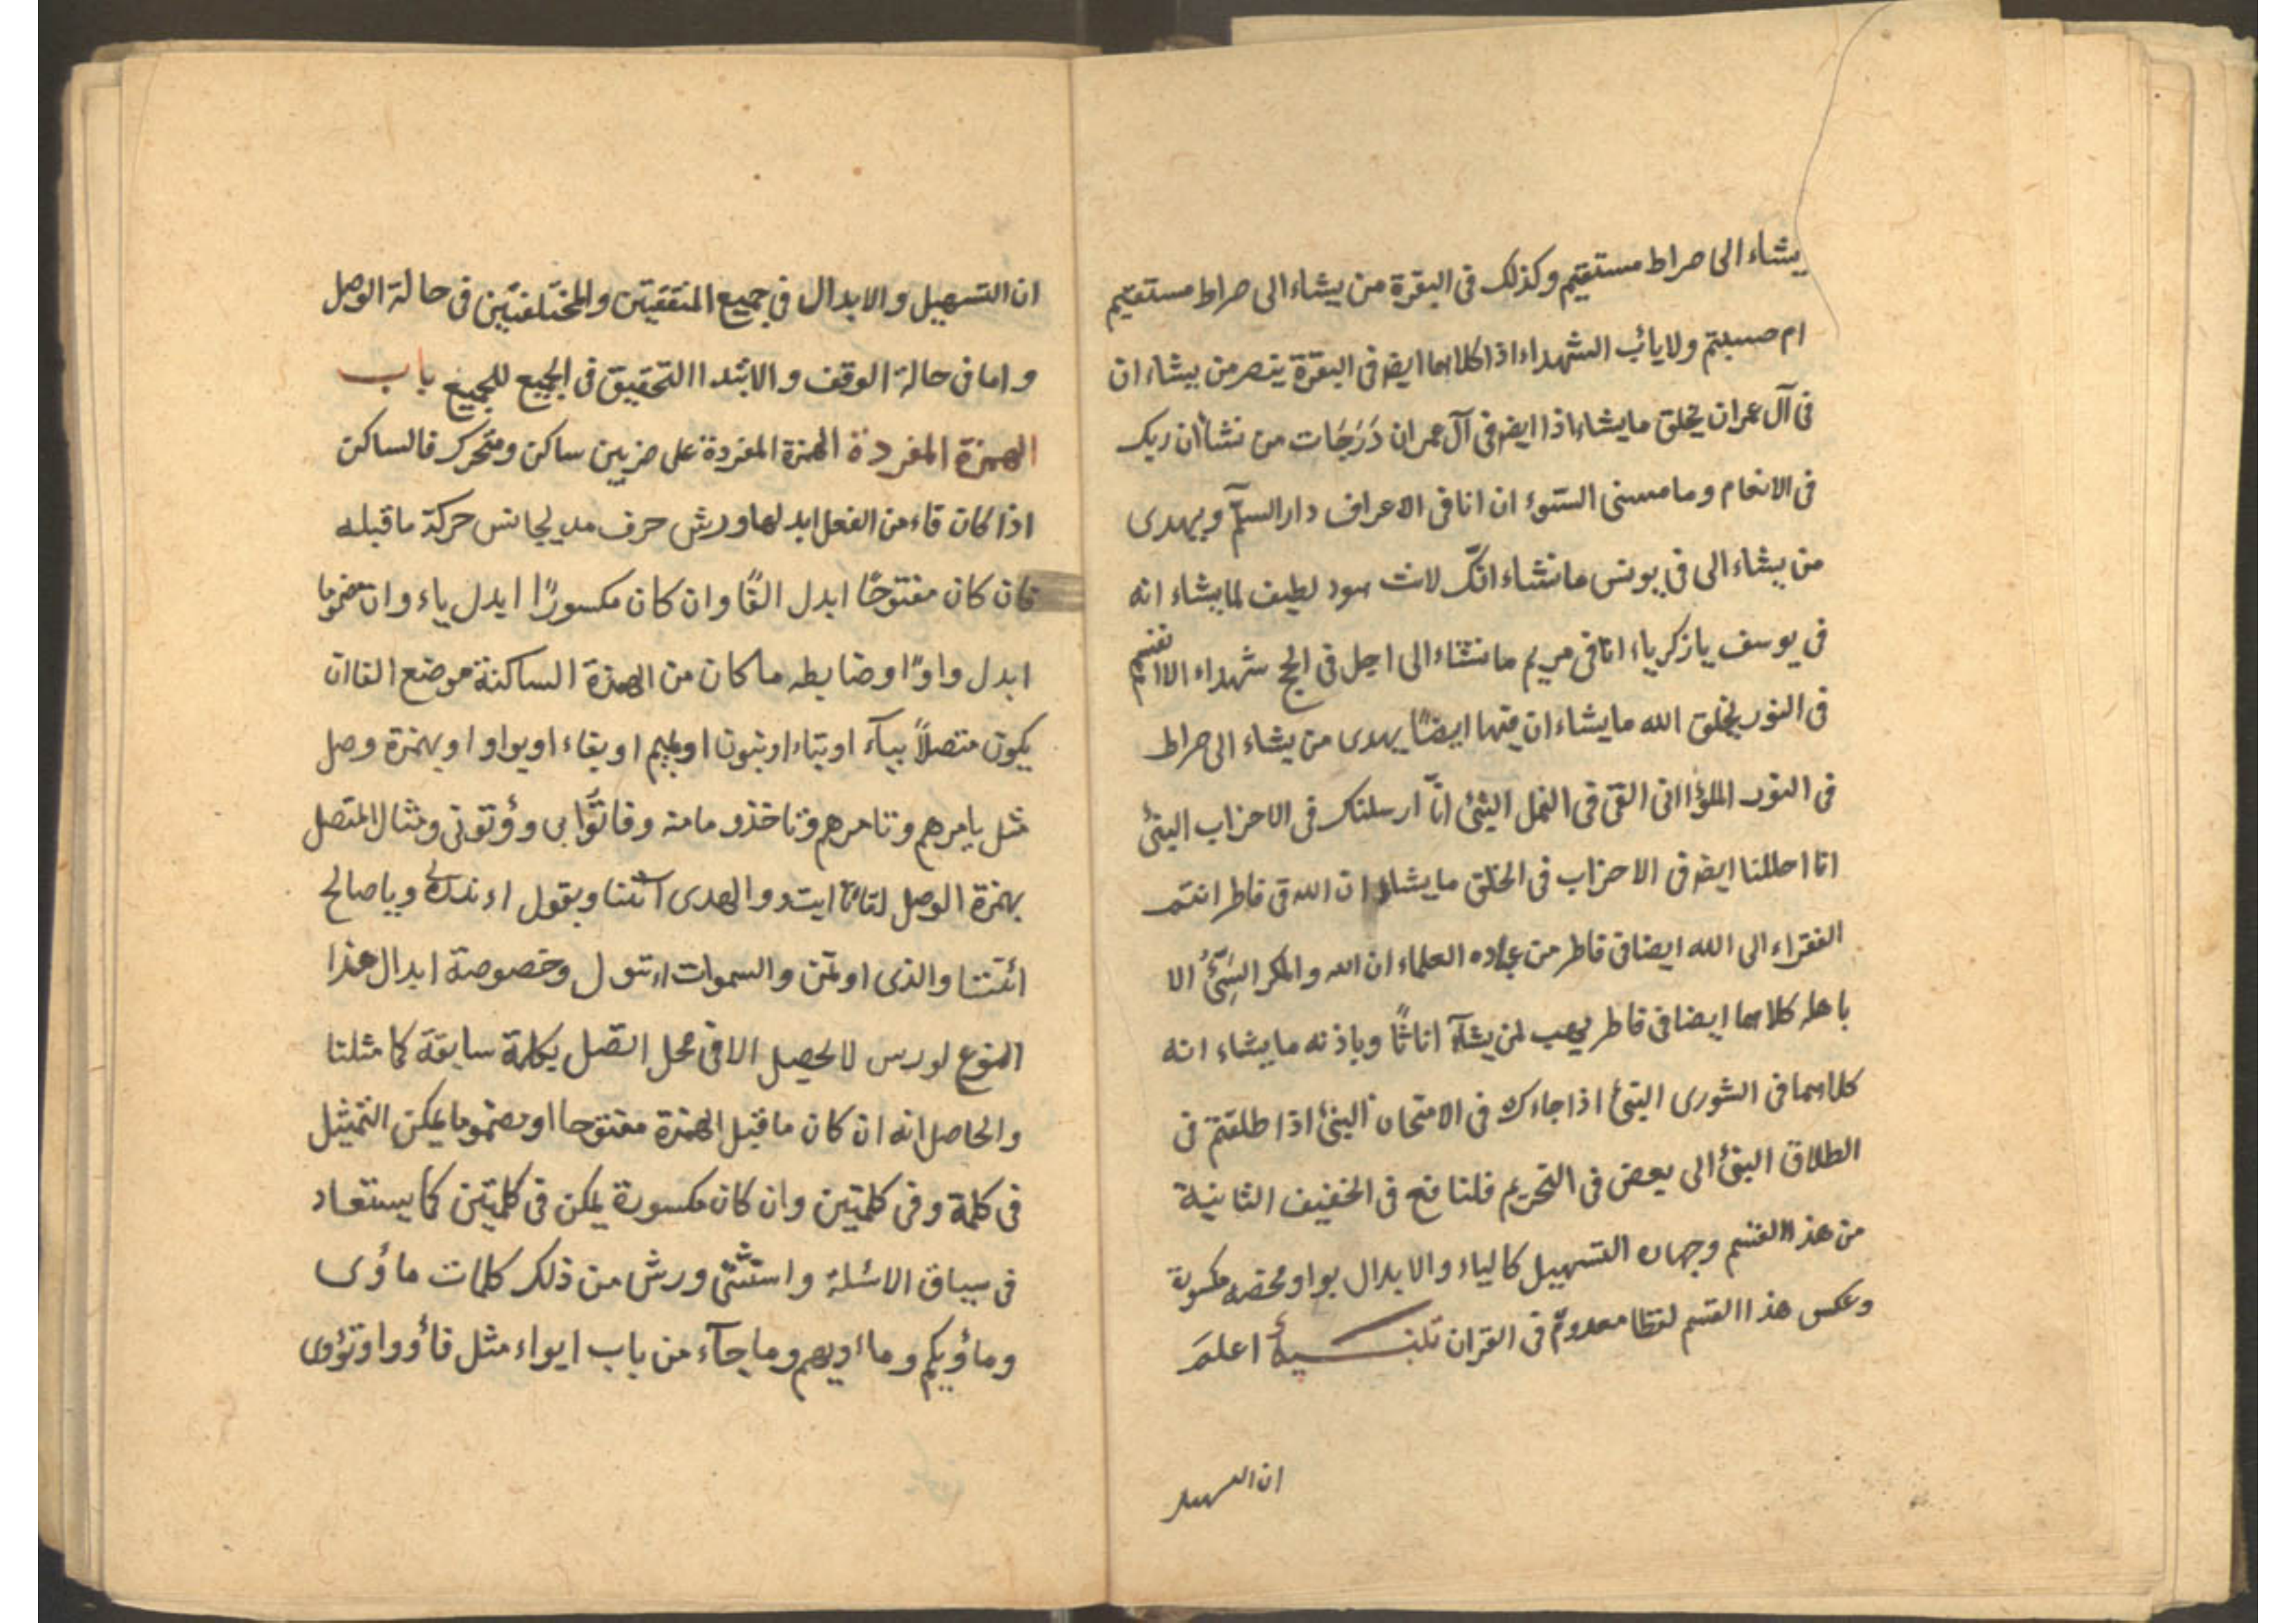 يشاء الى صراط مستقيم وكذلك فى البقرة من يشاء الى صراط مستقيم
ام حسبتم ولا يائب الشهداء اذا كلاهما ايضا فى البقرة ينصر من يشاء ان
فى آل عمران يخلق ما يشاء اذا ايضا فى آل عمران دَرَجَات من نشاء ان ربك
فى الانعام وما مسنى السّوءُ ان انا فى الاعراف دار السلم ويهدى
من يشاء الى فى يونس ما نشاء انّك لانت هود لطيف لما يشاء انه
فى يوسف يا زكرياء انا فى مريم ما نشاء الى اجل فى الحج شهداء الا انفسهم
فى النور يخلق الله ما يشاء ان فيها ايضًا يهدى من يشاء الى صراط
فى النور الملؤا انى القى فى النمل النبئ انّا ارسلناك فى الاحزاب النبئ
انا احللنا ايضا فى الاحزاب فى الخلق ما يشاء ان الله فى فاطر انتم
الفقراء الى الله ايضا فى فاطر من عباده العلماء ان الله والمكر السَيِّئُ الا
باهله كلاهما ايضا فى فاطر يهب لمن يشآء اناثًا وباذنه ما يشاء انه
كلاهما فى الشورى النبئ اذا جاءك فى الامتحان النبئ اذا طلقتم فى
الطلاق النبئ الى بعض فى التحريم فلنافع فى الخفيف الثانية
من هذا القسم وجهان التسهيل كالياء والابدال بواو محضه مكسورة
وعكس هذا القسم لفظا معدوم فى القران تنبيه اعلم
ان التسهيل
ان التسهيل والابدال فى جميع المتفقيتن والمختلفتين فى حالة الوصل
واما فى حالة الوقف والابتدا التحقيق فى الجميع للجميع باب
الهمزة المفردة الهمزة المفردة على ضربين ساكن ومتحرك فالساكن
اذا كان فاء من الفعل ابدلها ورش حرف مد يجانس حركة ما قبله
فان كان مفتوحًا ابدل الفًا وان كان مكسورًا ابدل ياء وان مضموما
ابدل واوًا وضابطه ما كان من الهمزة الساكنة موضع الفا ان
يكون متصلاً بيآء او بتاء او بنون او بميم او بفاء او بواو او بهمزة وصل
مثل يامرهم وتامرهم وناخذ ومامنه وفاتوا بى وؤتونى ومثال المتصل
بهمزة الوصل لقاءنا ايت والهدى ائتنا ويقول اءذن لى ويا صالح
ائتنا والذى اوتمن والسموات ائتو ل وخصوصة ابدال هذا
النوع لورس لا يحصل الا فى محل اتصل بكلمة سابقة كما مثلنا
والحاصل انه ان كان ما قبل الهمزة مفتوحا او مضموما يمكن التمثيل
فى كلمة وفى كلمتين وان كان مكسورة يمكن فى كلمتين كما يستفاد
فى سياق الاسئلة واستثنى ورش من ذلك كلمات مأوى
ومأويكم ومأويهم وما جآء من باب ايواء مثل فأووا وتؤوى